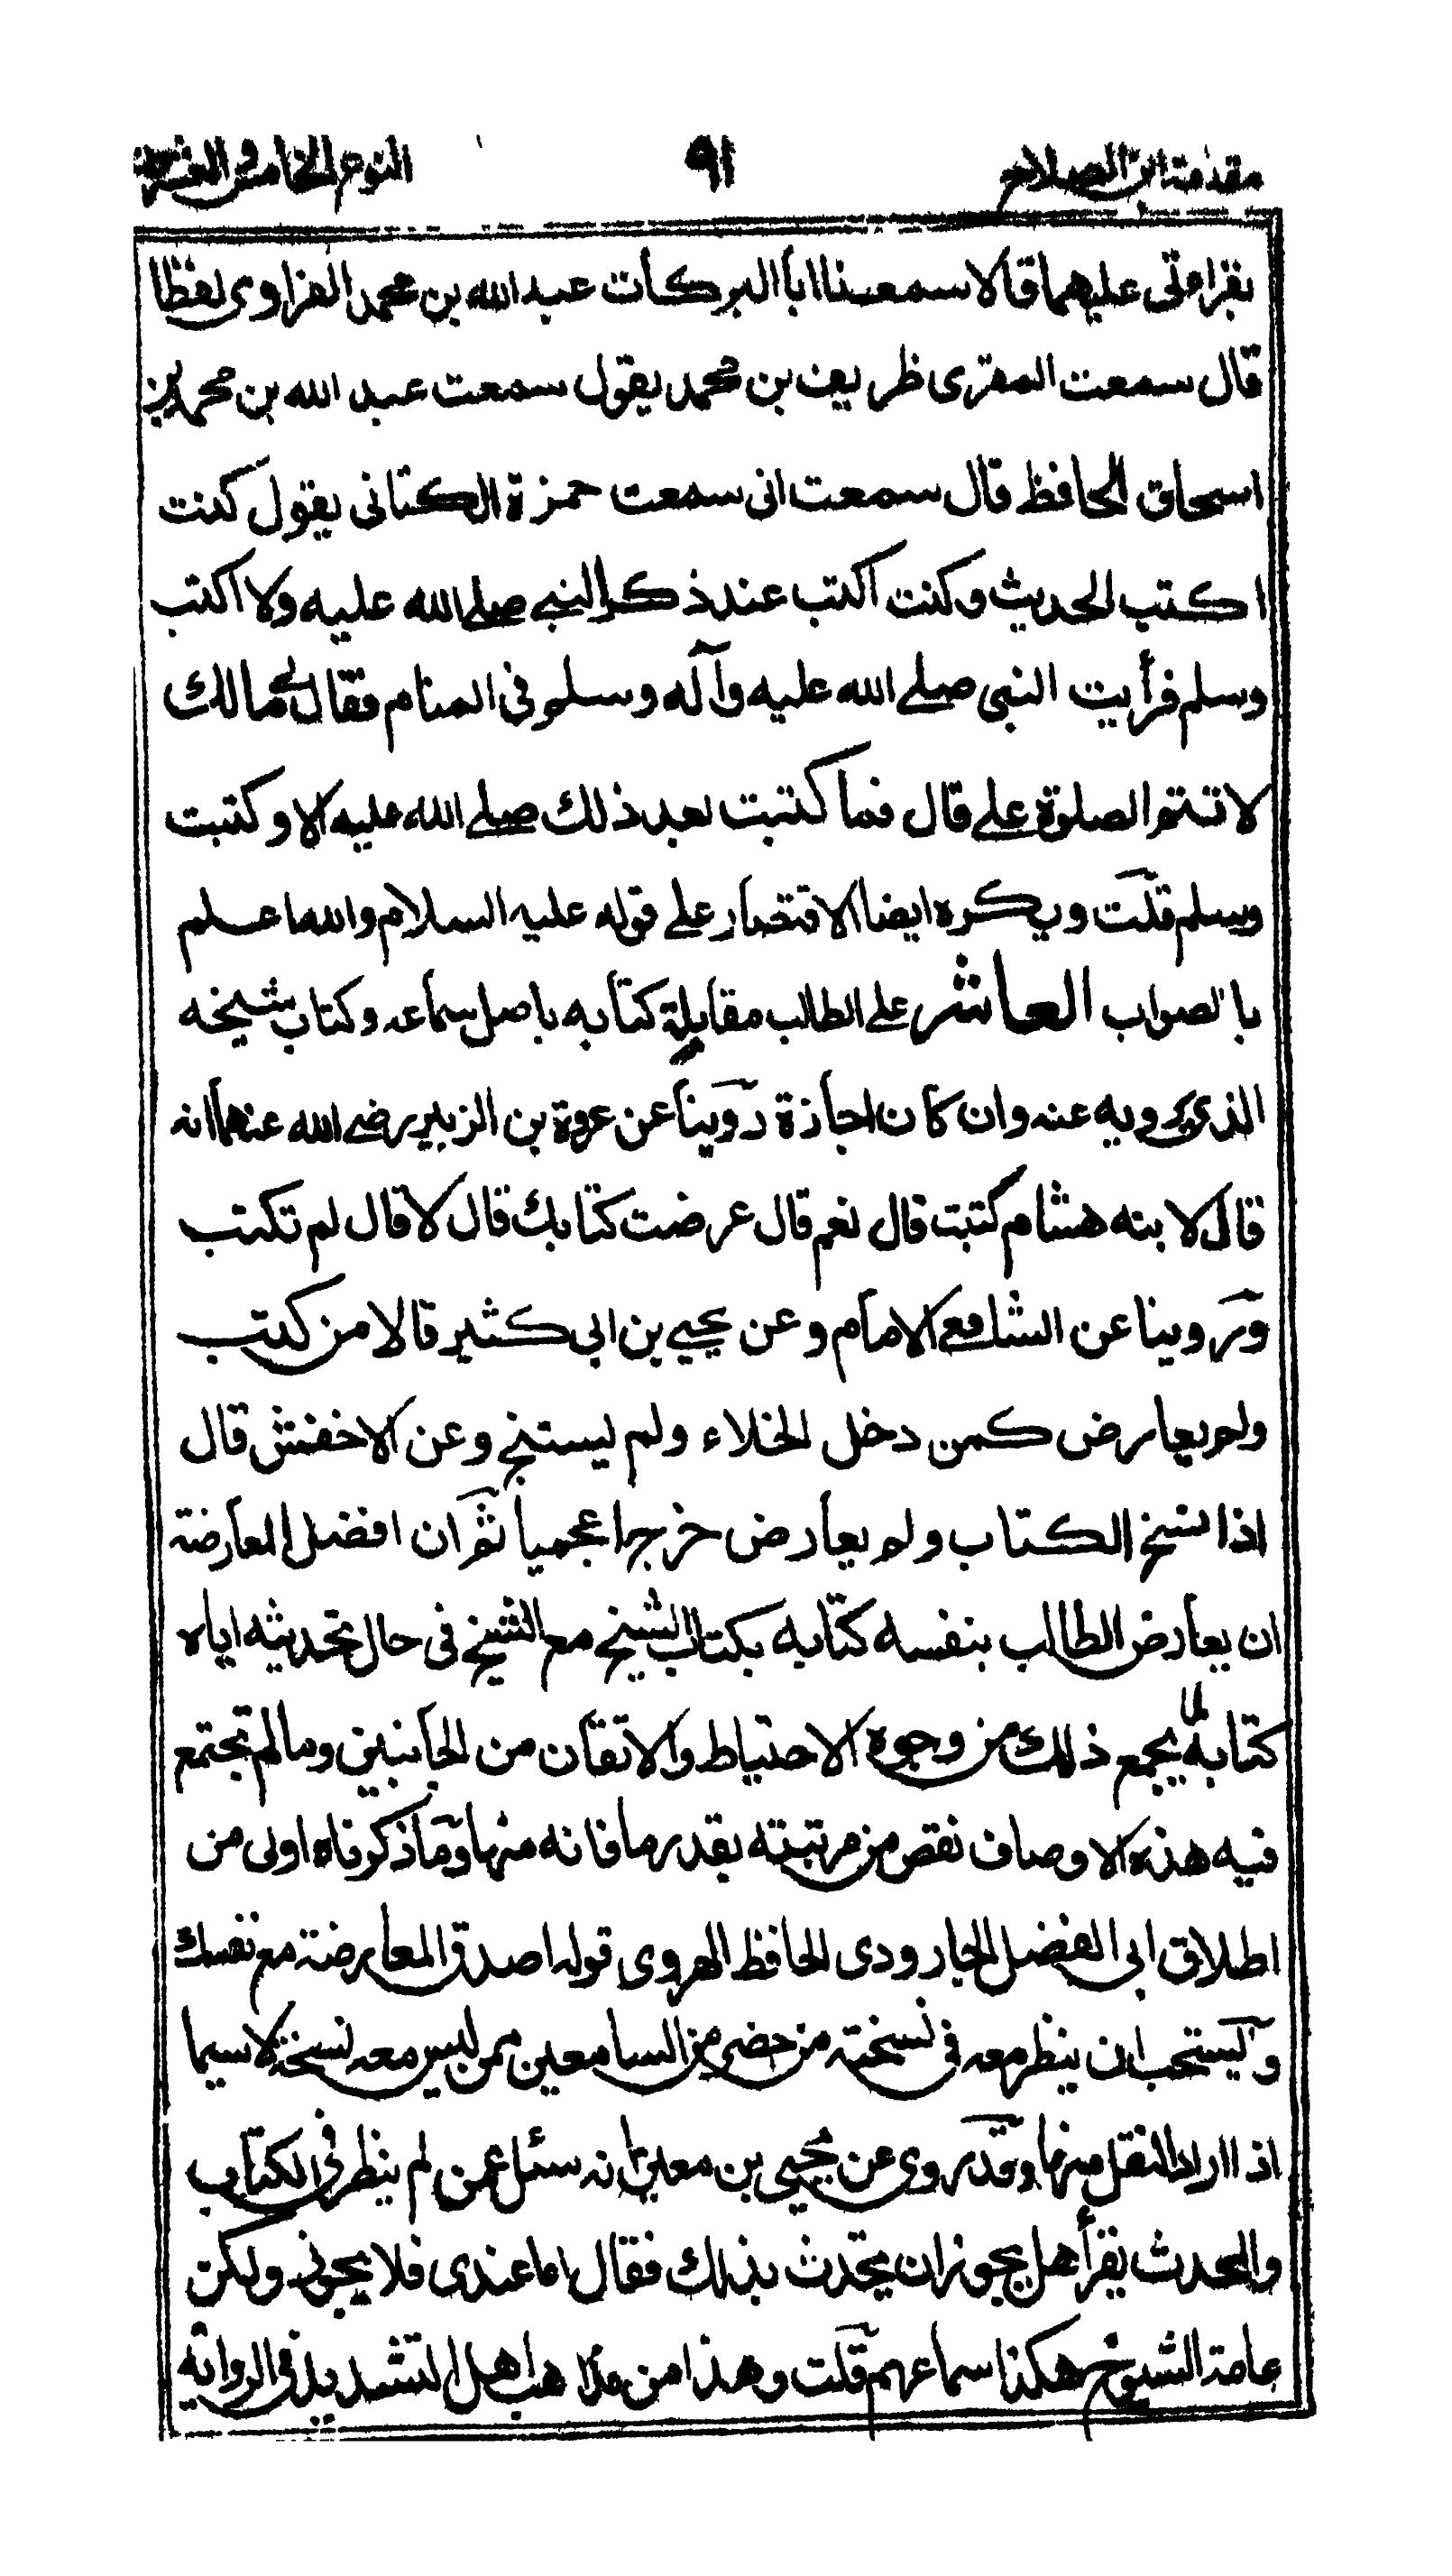 مقدمة ابن الصلاح ٩١ النوع الخامس والعشرون
بقراءتى عليهما قالا سمعنا ابا البركات عبد الله بن محمد الفزاوى لفظا
قال سمعت المقرى ظريف بن محمد يقول سمعت عبد الله بن محمد بن
اسحاق الحافظ قال سمعت انى سمعت حمزة الكتانى يقول كنت
اكتب الحديث وكنت اكتب عند ذكر النبى صلى الله عليه ولا اكتب
وسلم فرأيت النبى صلى الله عليه وآله وسلم فى المنام فقال لى مالك
لا تتم الصلوة على قال فما كتبت بعد ذلك صلى الله عليه الا وكتبت
وسلم قلت ويكره ايضا الاقتصار على قوله عليه السلام والله اعلم
بالصواب العاشر على الطالب مقابلة كتابه باصل سماعه وكتاب شيخه
الذى يرويه عنه وان كان اجازة روينا عن عروة بن الزبير رضى الله عنهما انه
قال لابنه هشام كتبت قال نعم قال عرضت كتابك قال لا قال لم تكتب
وروينا عن الشافعى الامام وعن يحيى بن ابى كثير قالا من كتب
ولم يعارض كمن دخل الخلاء ولم يستنج وعن الاخفش قال
اذا نسخ الكتاب ولم يعارض خرج اعجميا ثم ان افضل المعارضة
ان يعارض الطالب بنفسه كتابه بكتاب الشيخ مع الشيخ فى حال تحديثه اياه
كتابه لما يجمع ذلك من وجوه الاحتياط والاتقان من الجانبين وما لم تجتمع
فيه هذه الاوصاف نقص من مرتبته بقدر ما فاته منها وما ذكرناه اولى من
اطلاق ابى الفضل الجارودى الحافظ الهروى قوله اصدق المعارضة مع نفسك
ويستحب ان ينظر معه فى نسخته من حضر من السامعين ممن ليس معه نسخة لاسيما
اذا اراد النقل منها وقد روى عن يحيى بن معين انه سئل عمن لم ينظر فى الكتاب
والمحدث يقرأ هل يجوز ان يحدث بذلك فقال اما عندى فلا يجوز ولكن
عامة الشيوخ هكذا سماعهم قلت وهذا من مذاهب اهل التشديد فى الرواية